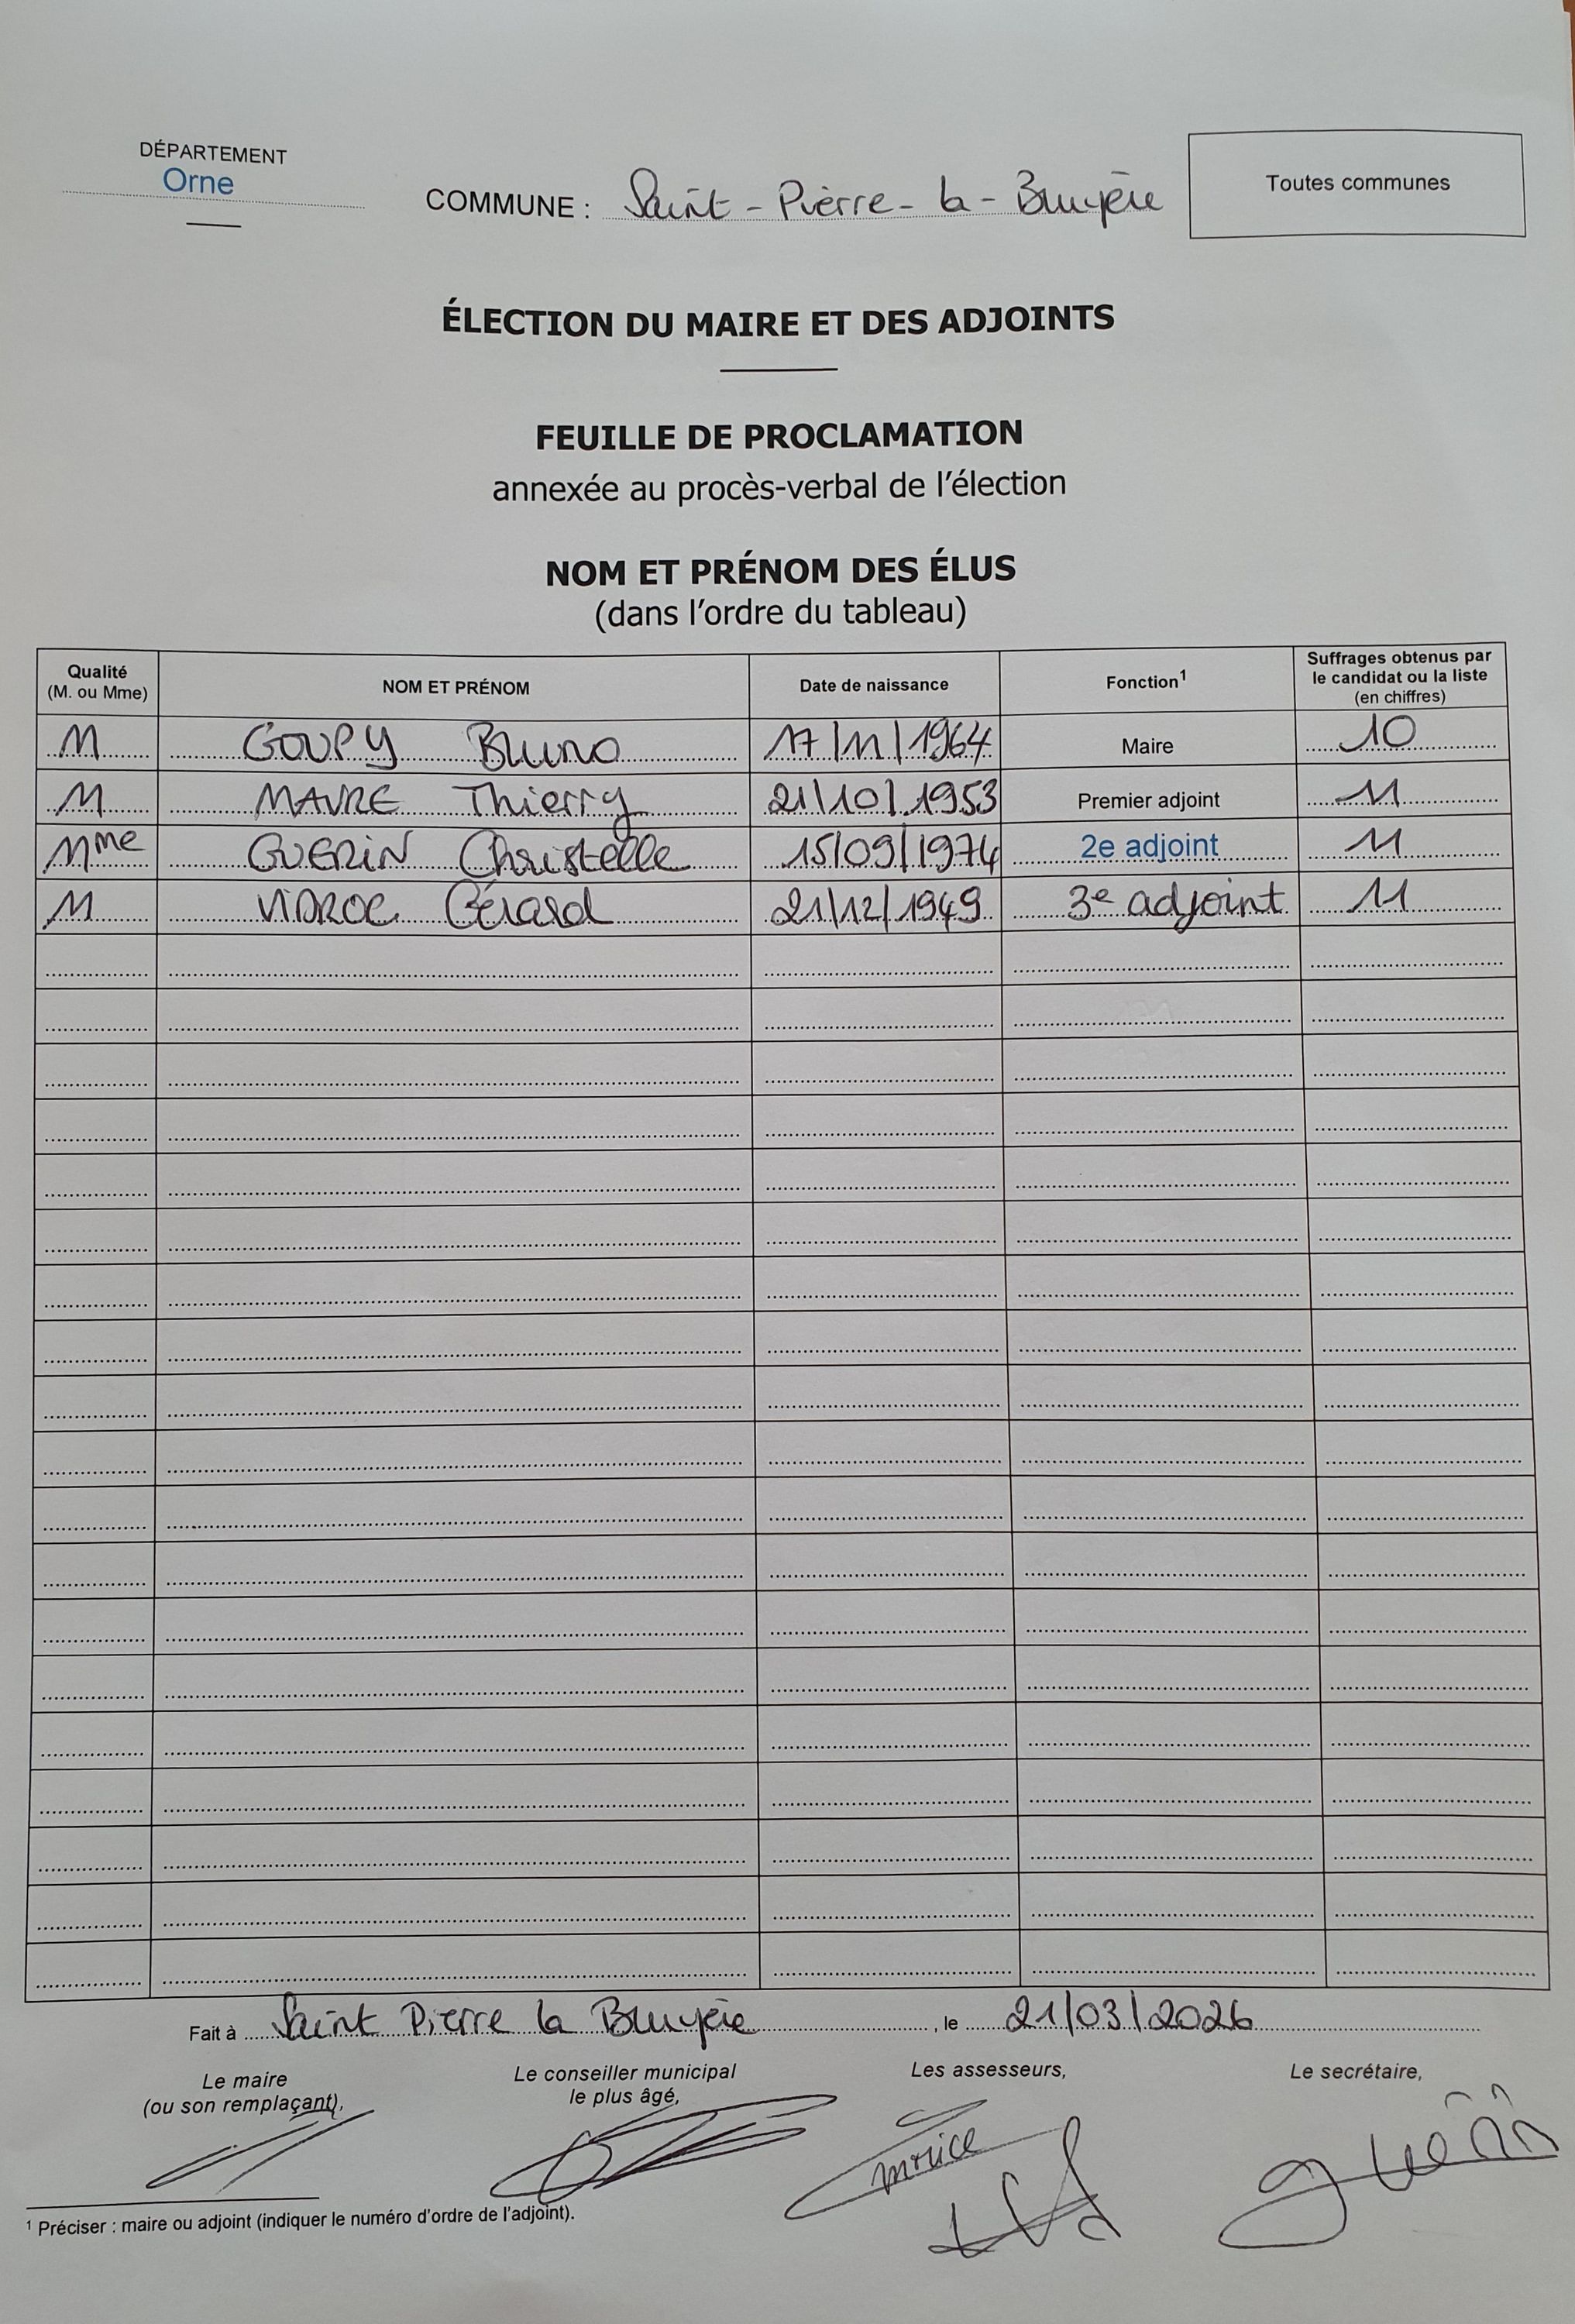 DÉPARTEMENT
Orne
COMMUNE : Saint-Pierre-la-Bruyère
Toutes communes
ÉLECTION DU MAIRE ET DES ADJOINTS
FEUILLE DE PROCLAMATION
annexée au procès-verbal de l'élection
NOM ET PRÉNOM DES ÉLUS
(dans l'ordre du tableau)
Qualité (M. ou Mme) NOM ET PRÉNOM Date de naissance Fonction¹ Suffrages obtenus par le candidat ou la liste (en chiffres)
M GOUPY Bruno 17/11/1964 Maire 10
M MAVRE Thierry 21/10/1953 Premier adjoint 11
Mme GUERIN Christelle 15/09/1974 2e adjoint 11
M VIDROC Gérard 21/12/1949 3e adjoint 11
Fait à Saint Pierre la Bruyère, le 21/03/2026
Le maire
(ou son remplaçant),
Le conseiller municipal
le plus âgé,
Les assesseurs,
Le secrétaire,
¹ Préciser : maire ou adjoint (indiquer le numéro d'ordre de l'adjoint).